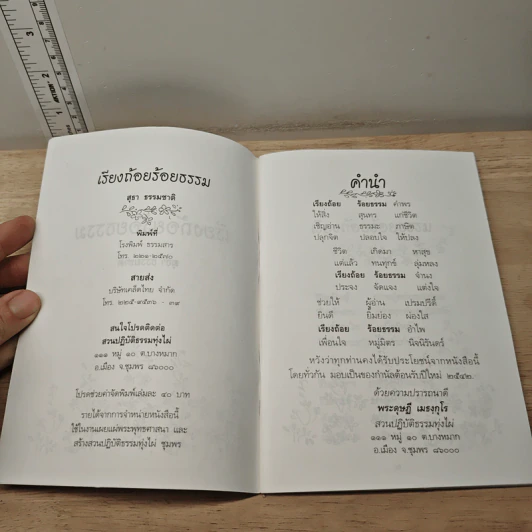 เรียงถ้อยร้อยธรรม
สุธา ธรรมชาติ
พิมพ์ที่
โรงพิมพ์ ธรรมสาร
สายส่ง
บริษัทเคล็ดไทย จำกัด
โทร. ๒๒๕-๙๕๓๖ - ๓๙
สนใจโปรดติดต่อ
สวนปฏิบัติธรรมทุ่งไผ่
๑๑๑ หมู่ ๑๐ ต.บางหมาก
อ.เมือง จ.ชุมพร ๘๖๐๐๐
โปรดช่วยค่าจัดพิมพ์เล่มละ ๔๐ บาท
รายได้จากการจำหน่ายหนังสือนี้
ใช้ในงานเผยแผ่พระพุทธศาสนา และ
สร้างสวนปฏิบัติธรรมทุ่งไผ่ ชุมพร
คำนำ
เรียงถ้อย ร้อยธรรม คำพร
ให้สิ่ง สุนทร แก่ชีวิต
เชิญอ่าน ธรรมะ ภาษิต
ปลุกจิต ปลอบใจ ให้ปลง
ชีวิต เกิดมา หาสุข
แต่แล้ว ทนทุกข์ ลุ่มหลง
เรียงถ้อย ร้อยธรรม จำนง
ประจง จัดแจง แต่งใจ
ช่วยให้ ผู้อ่าน เปรมปรีดิ์
ยินดี ยิ้มย่อง ผ่องใส
เรียงถ้อย ร้อยธรรม อำไพ
เพื่อนใจ หมู่มิตร นิจนิรันดร์
หวังว่าทุกท่านคงได้รับประโยชน์จากหนังสือนี้
โดยทั่วกัน มอบเป็นของกำนัลต้อนรับปีใหม่ ๒๕๔๒.
ด้วยความปรารถนาดี
พระดุษฎี เมธงฺกุโร
สวนปฏิบัติธรรมทุ่งไผ่
๑๑๑ หมู่ ๑๐ ต.บางหมาก
อ.เมือง จ.ชุมพร ๘๖๐๐๐